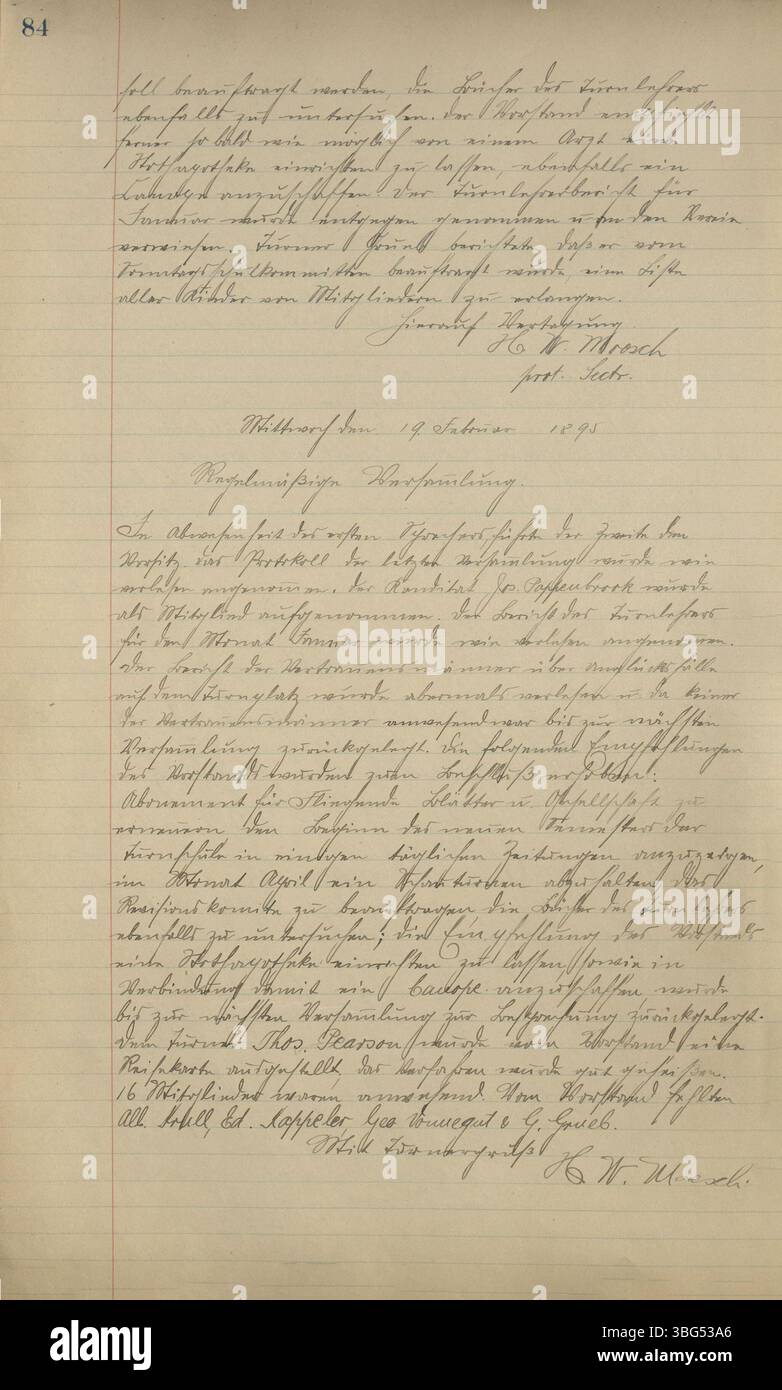 84
soll beauftragt werden, die Bücher des Turnlehrers
ebenfalls zu untersuchen. Der Vorstand empfiehlt
ferner so bald wie möglich von einem Arzt eine
Nothapotheke einrichten zu lassen, ebenfalls ein
anzuschaffen. Der Turnlehrerbericht für
Januar wurde entgegen genommen u an den Verein
verwiesen. Turner berichtete daß er vom
Sonntagsschulkommitten beauftragt wurde, eine Liste
aller Kinder von Mitgliedern zu erlangen.
Hierauf Vertagung.
H. W. Moesch
prot. Sectr.
Mittwoch den 19. Februar 1895
Regelmäßige Versam̄lung.
In Abwesenheit des ersten Sprechers führte der Zweite den
Vorsitz. Das Protokoll der letzten Versam̄lung wurde wie
verlesen angenom̄en. Der Kanditat Jos. Pappenbrook wurde
als Mitglied aufgenommen. Der Bericht des Turnlehrers
für den Monat Januar wurde wie verlesen angenom̄en.
Der Bericht der Vertrauensmänner über Unglücksfälle
auf dem Turnplatz wurde abermals verlesen u da keiner
der Vertrauensmänner anwesend war bis zur nächsten
Versam̄lung zurückgelegt. Die folgenden Empfehlungen
des Vorstands wurden zum Beschluß erhoben:
Abonement für Fliegende Blätter u. Gesellschaft zu
erneuern, den Beginn des neuen Semesters der
Turnschule in einigen täglichen Zeitungen anzuzeigen,
im Monat April ein Schauturnen abzuhalten, das
Revisionskomite zu beauftragen die Bücher des
ebenfalls zu untersuchen; die Empfehlung des Vorstands
eine Nothapotheke einrichten zu lassen sowie in
Verbindung damit ein anzuschaffen, wurde
bis zur nächsten Versam̄lung zur Besprechung zurückgelegt.
Dem Turner Thos. Pearson wurde vom Vorstand eine
Reisekarte ausgestellt, das Verfahren wurde gut geheißen.
16 Mitglieder waren anwesend. Vom Vorstand fehlten
Alb. Krull, Ed. Kappeler, Geo Vonnegut & G. Grueb.
Mit Turnergruß
H. W. Moesch.
alamy
Image ID: 3BG53A6
www.alamy.com